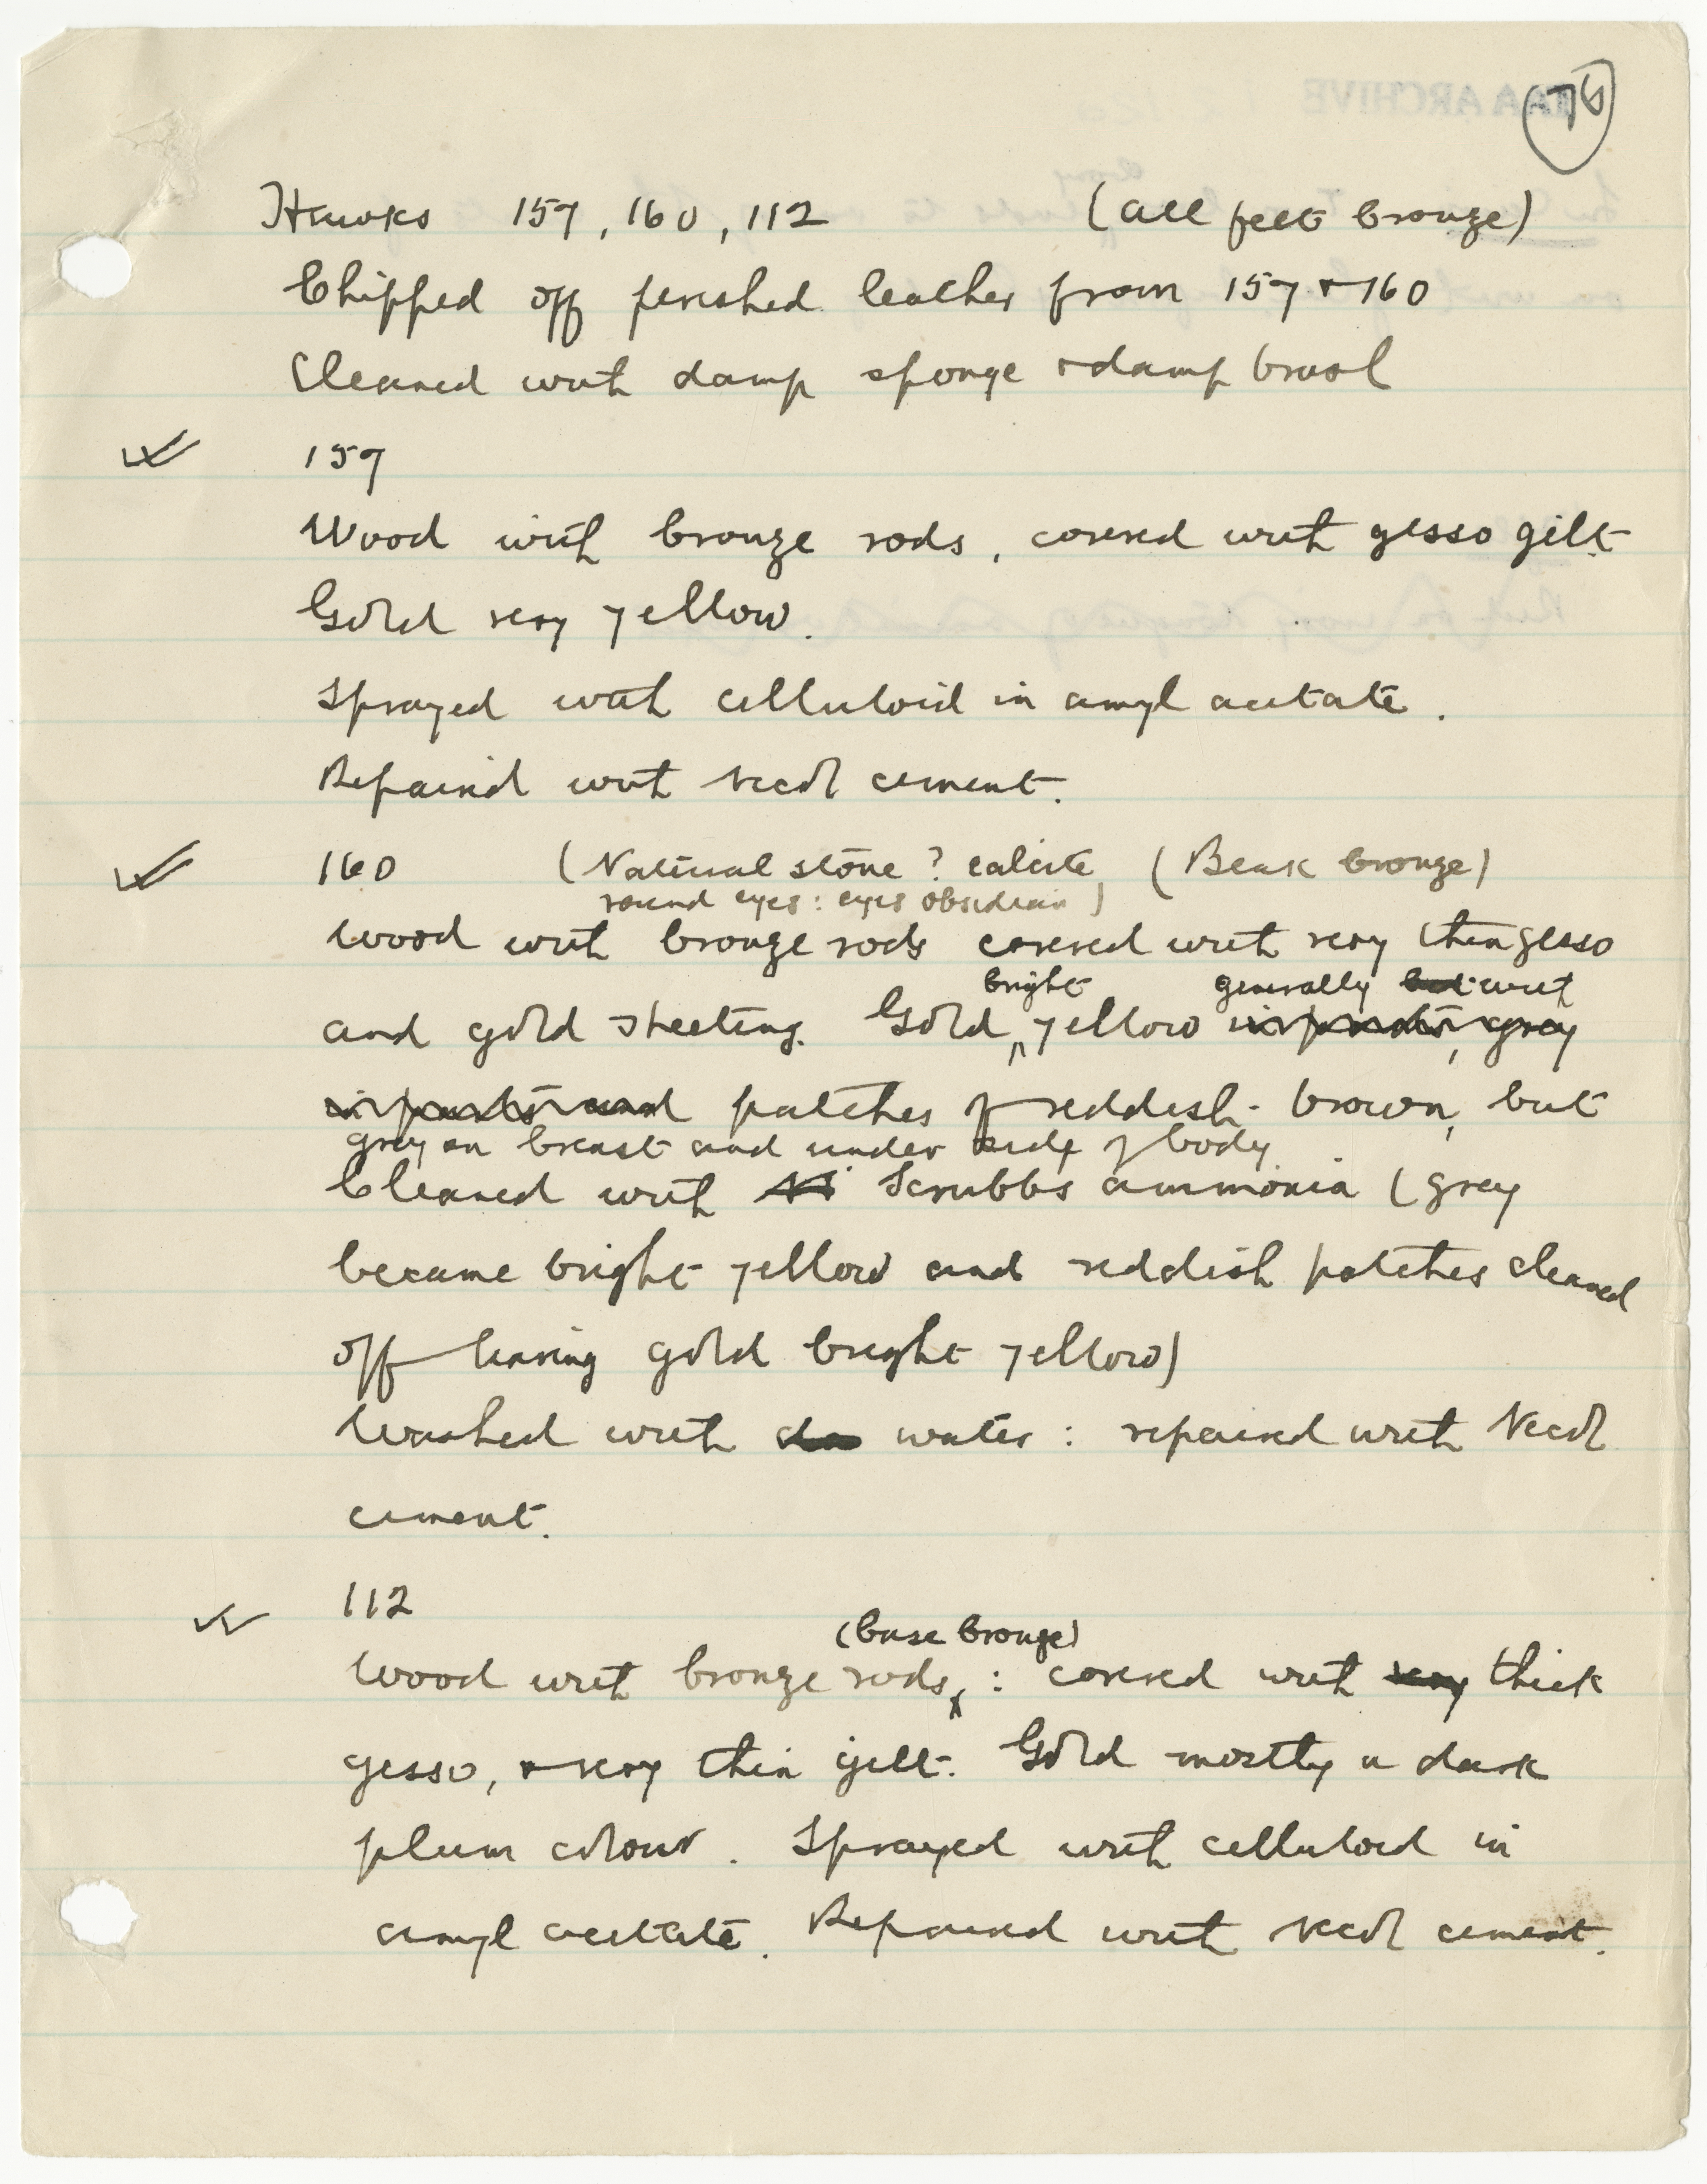 76
Hawks 157, 160, 112 (all feet bronze)
Chipped off perished leather from 157 + 160
Cleaned with damp sponge + damp brush
157
Wood with bronze rods, covered with gesso gilt
Gold very yellow.
Sprayed with celluloid in amyl acetate.
Repaired with Necol cement.
160 (Natural stone? calcite, (Beak bronze)
round eyes: eyes obsidian)
Wood with bronze rods covered with very thin gesso
bright generally but with
and gold sheeting. Gold, yellow in parts, grey
in parts and patches of reddish-brown, but
grey on breast and under side of body.
Cleaned with Scrubbs ammonia (grey
became bright yellow and reddish patches cleaned
off leaving gold bright yellow)
Washed with water: repaired with Necol
cement.
112
(base bronze)
Wood with bronze rods: covered with very thick
gesso, + very thin gilt. Gold mostly a dark
plum colour. Sprayed with celluloid in
amyl acetate. Repaired with Necol cement.